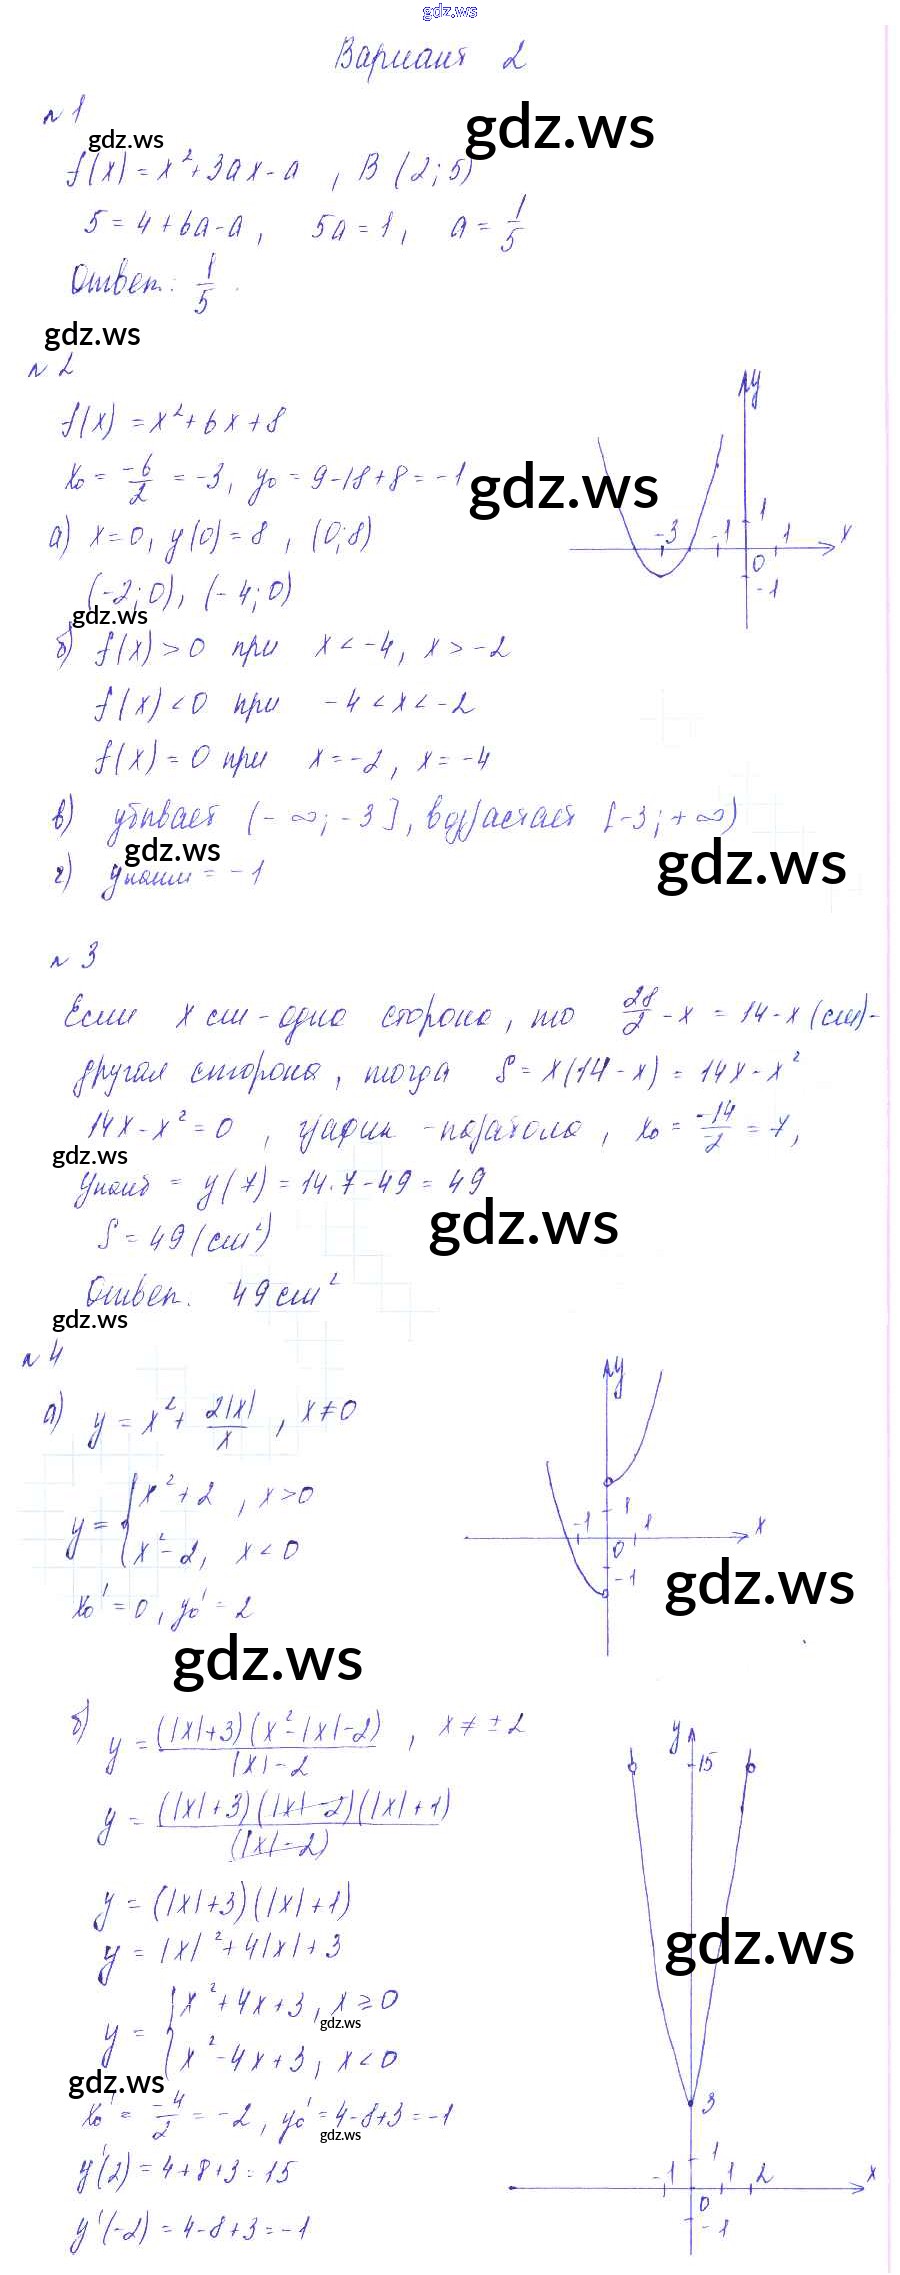 gdz.ws
Вариант 2
n 1
gdz.ws gdz.ws
f(x) = x² + 3ax - a , B (2; 5)
5 = 4 + 6a - a , 5a = 1 , a = 1/5
Ответ: 1/5 .
gdz.ws
n 2
f(x) = x² + 6x + 8
x₀ = -6/2 = -3, y₀ = 9-18+8 = -1
gdz.ws
а) x = 0, y(0) = 8 , (0; 8)
(-2; 0), (-4; 0)
gdz.ws
y
1
-3 -1 1 x
0
-1
б) f(x) > 0 при x < -4, x > -2
f(x) < 0 при -4 < x < -2
f(x) = 0 при x = -2, x = -4
в) убывает (-∞; -3], возрастает [-3; +∞)
gdz.ws gdz.ws
г) yнаим = -1
n 3
Если x см - одна сторона, то 28/2 - x = 14 - x (см) -
другая сторона, тогда S = x(14 - x) = 14x - x²
14x - x² = 0 , график - парабола, x₀ = -14/-2 = 7,
gdz.ws
yнаиб = y(7) = 14·7 - 49 = 49
gdz.ws
S = 49 (см²)
Ответ. 49 см²
gdz.ws
n 4
а) y = x² + 2|x|/x , x ≠ 0
y = { x² + 2 , x > 0
x² - 2, x < 0
x₀' = 0, y₀' = 2
y
1
-1 1 x
0
-1
gdz.ws
gdz.ws
б) y = (|x|+3)(x²-|x|-2)/|x|-2 , x ≠ ±2
y = (|x|+3)(|x|-2)(|x|+1)/(|x|-2)
y = (|x|+3)(|x|+1)
y = |x|² + 4|x| + 3
y = { x² + 4x + 3, x ≥ 0
gdz.ws
x² - 4x + 3, x < 0
gdz.ws
x₀' = -4/2 = -2, y₀' = 4-8+3 = -1
gdz.ws
y'(2) = 4+8+3 = 15
y'(-2) = 4-8+3 = -1
y
15
gdz.ws
3
1
-1 1 2 x
0
-1